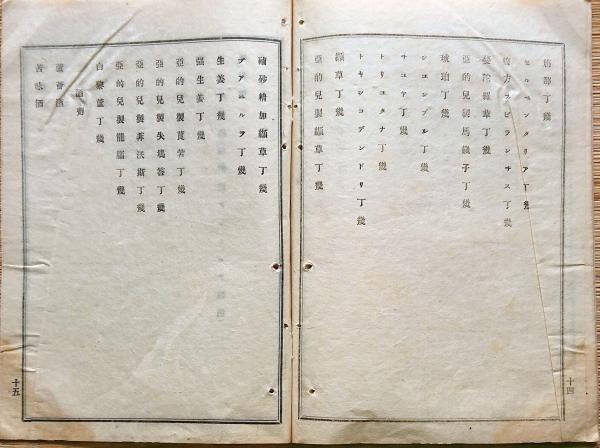 セルペンタリア丁幾
複方アスピランチス丁幾
曼陀羅華丁幾
亞的兒製馬錢子丁幾
琥珀丁幾
シエンプル丁幾
サユヤ丁幾
トリユタナ丁幾
トキシコデンドリ丁幾
纈草丁幾
亞的兒製纈草丁幾
十四
磠砂精加纈草丁幾
ブアエルヲ丁幾
生姜丁幾
强生姜丁幾
亞的兒製莨菪丁幾
亞的兒製失鳩答丁幾
亞的兒製菲沃斯丁幾
亞的兒製龍腦丁幾
白藜蘆丁幾
酒劑
蘆薈酒
苦味酒
十五